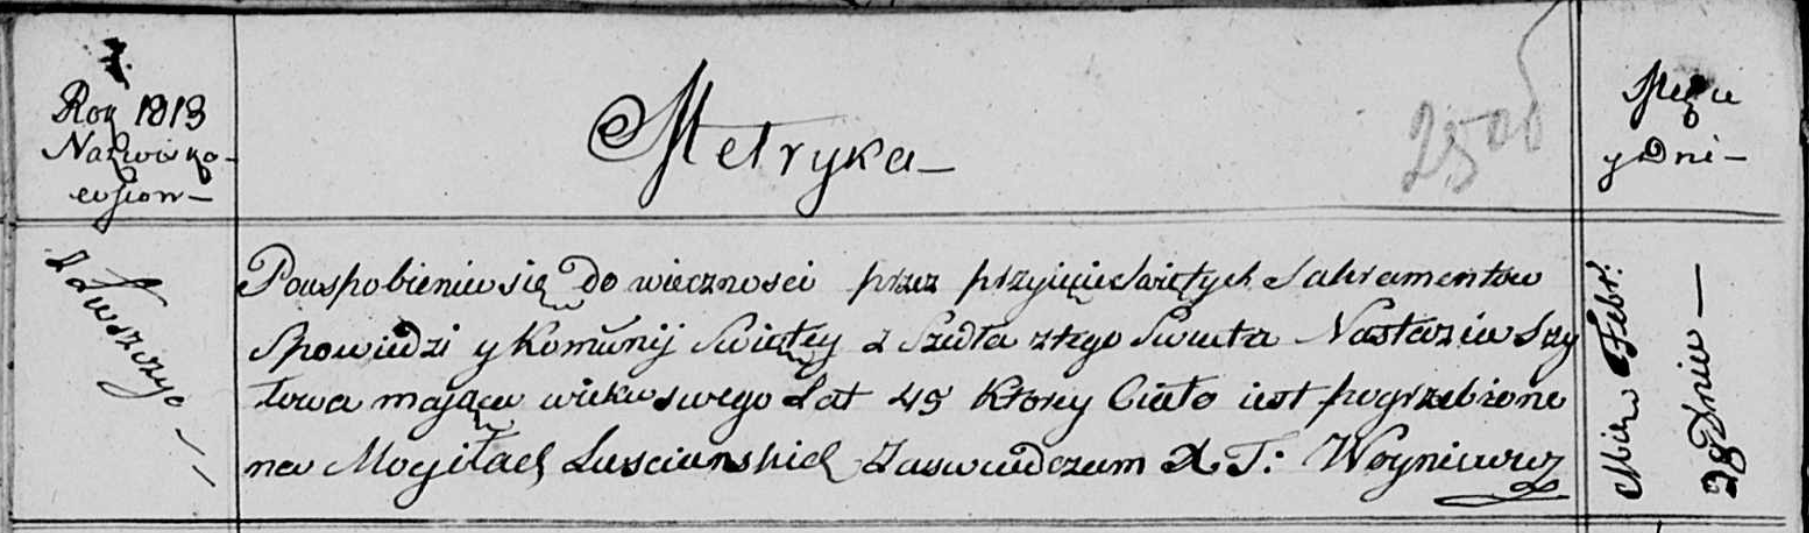 Rok 1813
Nazwisko
wsiow
Metryka
2506
Mca
y Dni
Z Luszczyc
Pouspobieniu się Do wieczności przez przyięcie Swiętych Sakramentow
Spowiedzi y Komunij Swiętey z Szedła ztego Swiata Nastazia Szy
łowa maiąca wieku swego Lat 45 Ktorey Ciało iest pogrzebione
na Mogiłach Luscianskich Zaswiadczam X T: Woyniewicz
Febr:
28 Dnia